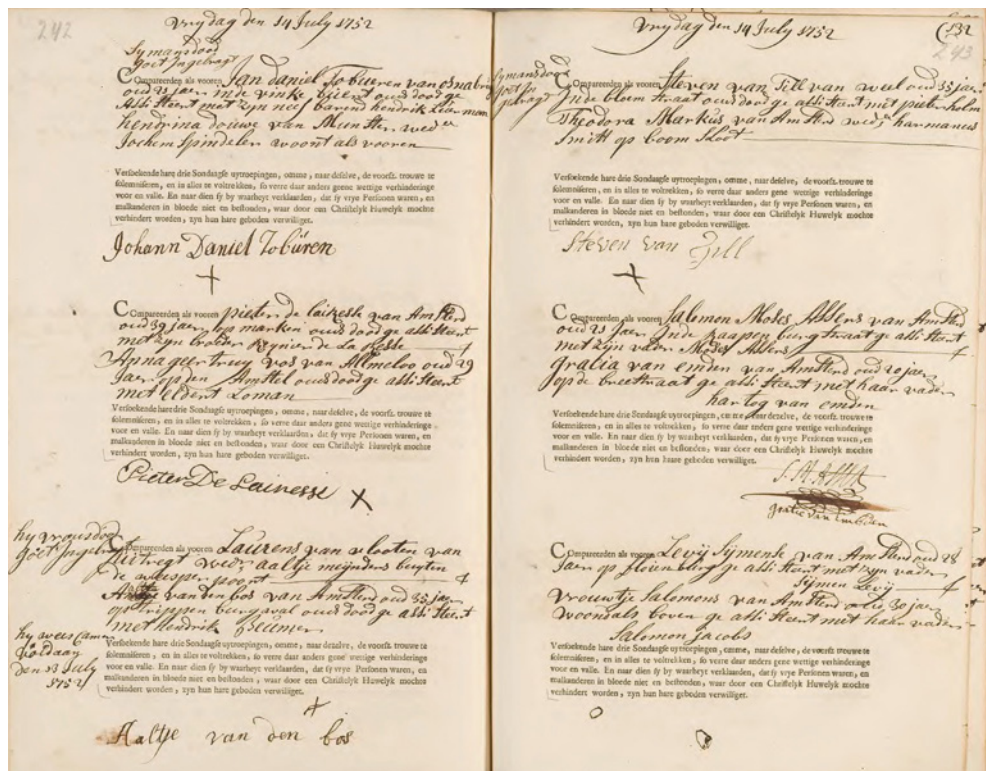 242
vrydag den 14 July 1752
Symansdood
goet Ingebragt
Compareerden als vooren Jan daniel Tobueren van osnabrug
oud 23 jaer inde vinke ouds dood ge
Assisteert met zyn neef barend hendrik
hendrina douwe van Munster wede
Jochem Spindeler woont als vooren
Versoekende hare drie Sondaagse uytroepingen, omme, naar deselve, de voorsz. trouwe te
solemniseren, en in alles te voltrekken, so verre daar anders gene wettige verhinderinge
voor en valle. En naar dien sy by waarheyt verklaarden, dat sy vrye Personen waren, en
malkanderen in bloede niet en bestonden, waar door een Christelyk Huwelyk mochte
verhindert worden, zyn hun hare geboden verwilliget.
Johann Daniel Tobüren
Compareerden als vooren pieter de lairesse van Amsterd
oud 39 jaer, op marken ouds dood ge assisteert
met zyn broeder Reynier de La Resse
Anna geertruy vos van Allmeloo oud 29
Jaer op den Amstel ouds dood ge assisteert
met eldert Loman
Versoekende hare drie Sondaagse uytroepingen, omme, naar deselve, de voorsz. trouwe te
solemniseren, en in alles te voltrekken, so verre daar anders gene wettige verhinderinge
voor en valle. En naar dien sy by waarheyt verklaarden, dat sy vrye Personen waren, en
malkanderen in bloede niet en bestonden, waar door een Christelyk Huwelyk mochte
verhindert worden, zyn hun hare geboden verwilliget.
Pieter De Lairesse
hy vrousdood
goet Ingebragt
Compareerden als vooren Laurens van vlooten van
uitregt wedr aaltje meijnders buyten
de weesper poort
van den bos van Amsterd oud 35 jaer
op trippen burgwal ouds dood ge assisteert
met hendrik
hy weescamer
voldaan
den 13 July
1752
Versoekende hare drie Sondaagse uytroepingen, omme, naar deselve, de voorsz. trouwe te
solemniseren, en in alles te voltrekken, so verre daar anders gene wettige verhinderinge
voor en valle. En naar dien sy by waarheyt verklaarden, dat sy vrye Personen waren, en
malkanderen in bloede niet en bestonden, waar door een Christelyk Huwelyk mochte
verhindert worden, zyn hun hare geboden verwilliget.
Aaltje van den bos
vrydag den 14 July 1752
132
243
Symansdood
goet In
gebragt
Compareerden als vooren Steven van Till van weel oud 35 jaer
Inde bloem straat ouds dood ge assisteert met pieter holm
Theodora Markus van Amsterd wede harmanus
Smitt op boom Sloot
Versoekende hare drie Sondaagse uytroepingen, omme, naar deselve, de voorsz. trouwe te
solemniseren, en in alles te voltrekken, so verre daar anders gene wettige verhinderinge
voor en valle. En naar dien sy by waarheyt verklaarden, dat sy vrye Personen waren, en
malkanderen in bloede niet en bestonden, waar door een Christelyk Huwelyk mochte
verhindert worden, zyn hun hare geboden verwilliget.
Steven van Zyll
Compareerden als vooren Salomon Moses Assers van Amsterd
oud 23 jaer Inde raapen burg straat ge assisteert
met zijn vader Moses Assers
gralia van emden van Amsterd oud 20 jaer
op de breestraat ge assisteert met haar vader
hartog van emden
Versoekende hare drie Sondaagse uytroepingen, omme, naar deselve, de voorsz. trouwe te
solemniseren, en in alles te voltrekken, so verre daar anders gene wettige verhinderinge
voor en valle. En naar dien sy by waarheyt verklaarden, dat sy vrye Personen waren, en
malkanderen in bloede niet en bestonden, waar door een Christelyk Huwelyk mochte
verhindert worden, zyn hun hare geboden verwilliget.
gratie van Embden
Compareerden als vooren Levij Sijmense van Amsterd oud 28
Jaer op floienberg ge assisteert met zyn vader
Sijmen Levij
vrouwtje Salomons van Amsterd oud 30 jaer
woond als boven ge assisteert met haar vader
Salomon Jacobs
Versoekende hare drie Sondaagse uytroepingen, omme, naar deselve, de voorsz. trouwe te
solemniseren, en in alles te voltrekken, so verre daar anders gene wettige verhinderinge
voor en valle. En naar dien sy by waarheyt verklaarden, dat sy vrye Personen waren, en
malkanderen in bloede niet en bestonden, waar door een Christelyk Huwelyk mochte
verhindert worden, zyn hun hare geboden verwilliget.